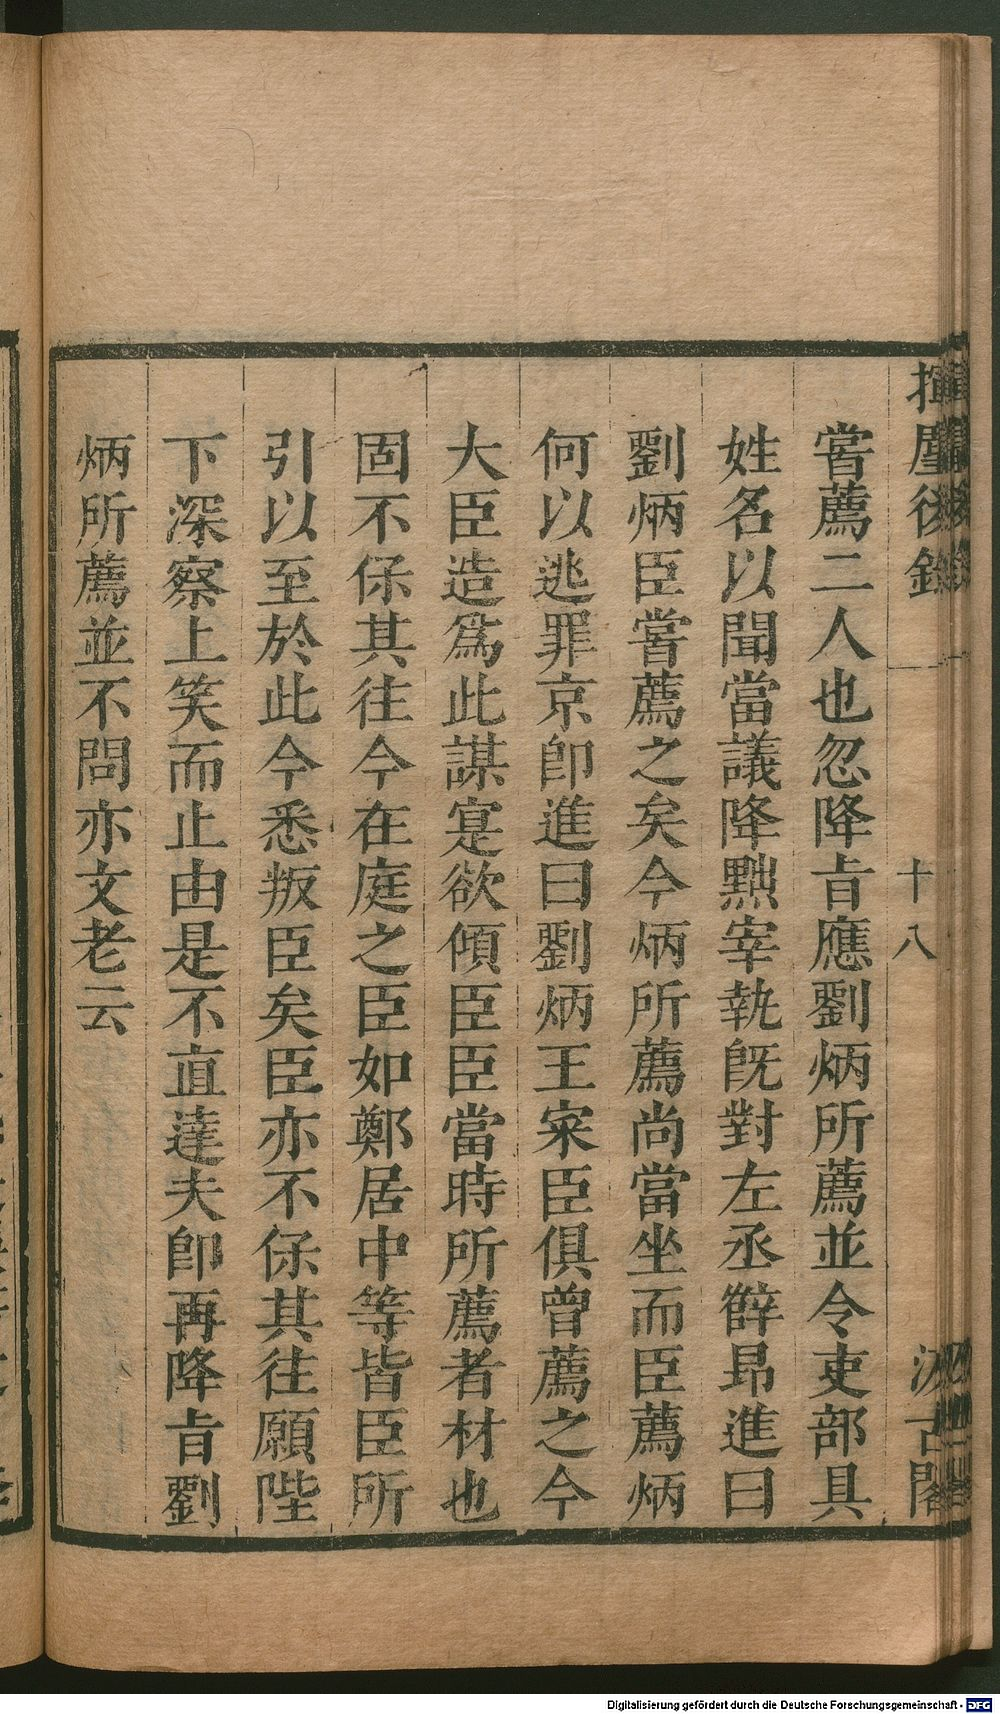 揮麈後錄
十八
汲古閣
嘗薦二人也忽降㫖應劉炳所薦並令吏部具
姓名以聞當議降黜宰執旣對左丞薛昂進曰
劉炳臣嘗薦之矣今炳所薦尚當坐而臣薦炳
何以逃罪京卽進曰劉炳王寀臣俱曾薦之今
大臣造爲此謀寔欲傾臣臣當時所薦者材也
固不保其往今在庭之臣如鄭居中等皆臣所
引以至於此今悉叛臣矣臣亦不保其往願陛
下深察上笑而止由是不直達夫卽再降㫖劉
炳所薦並不問亦文老云
Digitalisierung gefördert durch die Deutsche Forschungsgemeinschaft - DFG